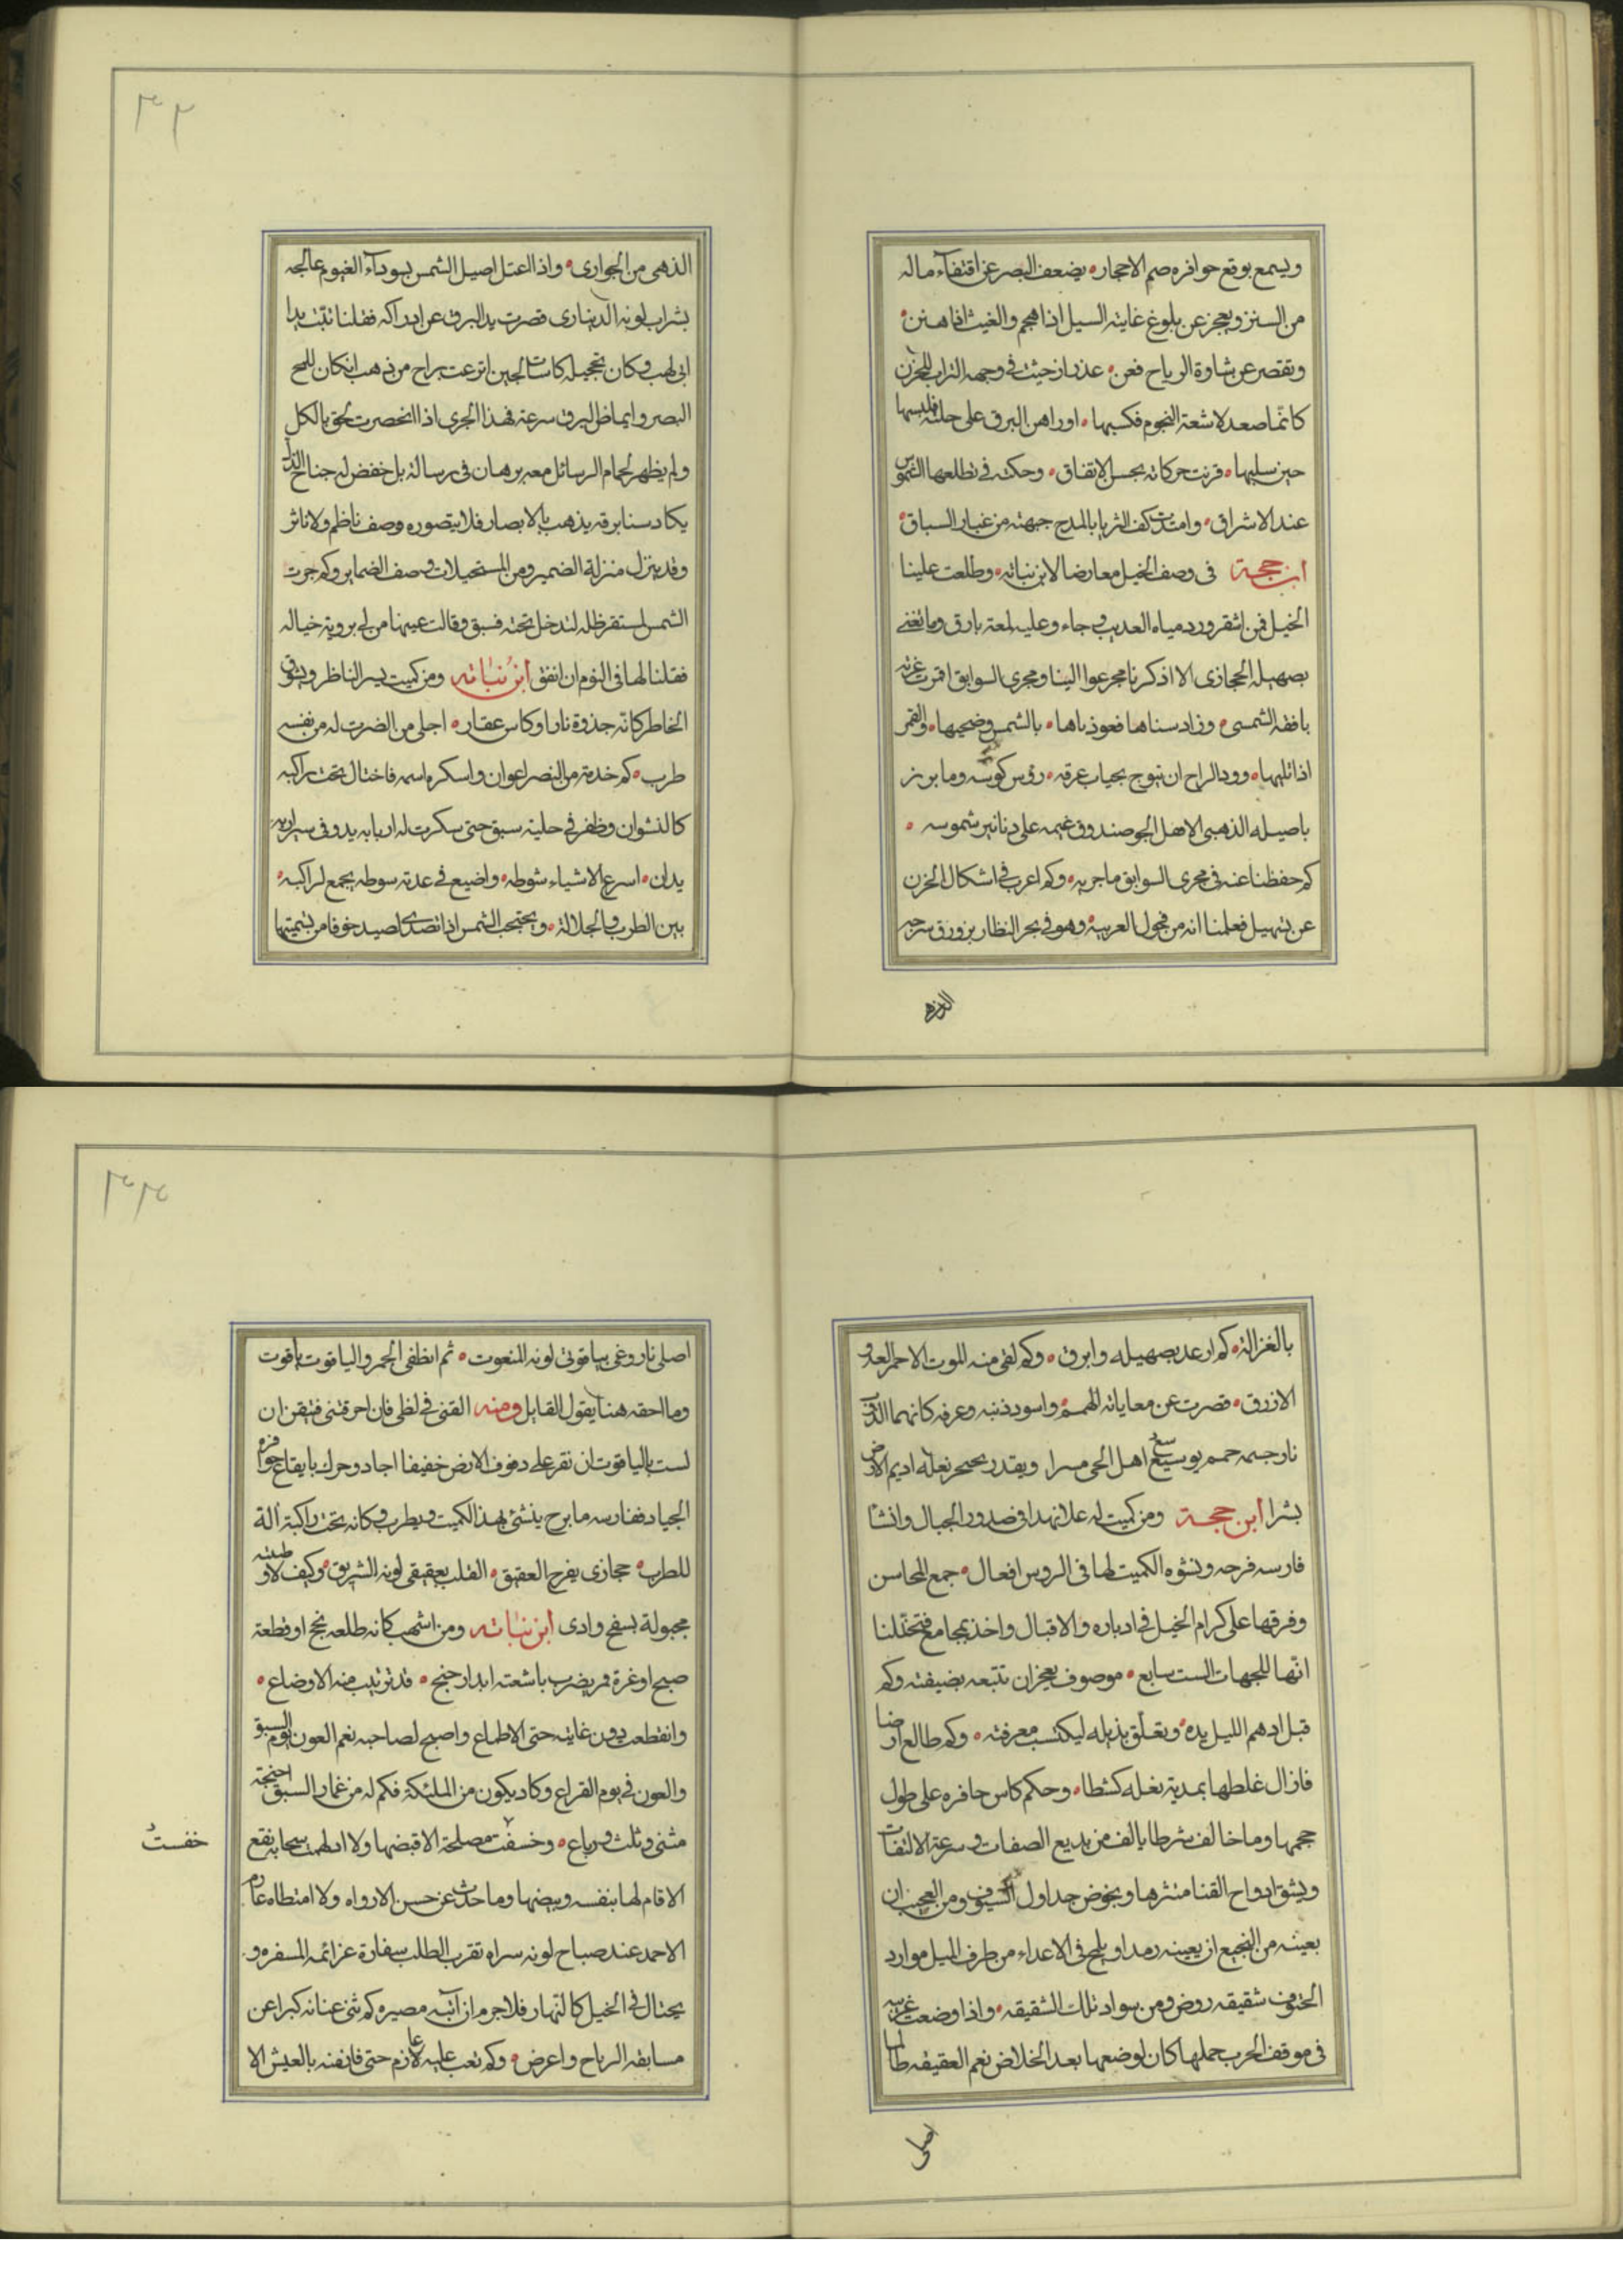 ويسمع بوقع حوافره صم الاحجار يضعف البصر عن اقتفآء ماله
من السنن ويعجز عن بلوغ غايته السيل اذا هجم والغيث اذا هتن
وتقصر عن شاوة الرياح فعن عذر ان حيث في وجهه التراب للحزن
كانما صعد لاشعة النجوم فكسبها اوراهن البرق على حلته فلبسها
حين سلبها قرنت حركاته بحسن الاتفاق وحكت في تطلعها الشموس
عند الاشراق وامتدت كف الثريا بالمدح جبهته من غبار السباق
ابن حجة في وصف الخيل معارضا لابن نباته وطلعت علينا
الخيل فمن اشقر ورد مياه العديب وجاء وعليه لمعة بارق وما تغني
بصهيله الحجازى الا اذكرنا مجر عوالينا ومجرى السوابق اقمرت غرته
بافقه الشمسى وزاد سناها فعوذناها بالشمس وضحيها والقمر
اذا تليها وود الراح ان تتوج بحباب عرقه رؤس كؤسه وما برز
باصيله الذهبي الا هل الجو صندوق غيمه على دنانير شموسه
كم حفظنا عنه في مجرى السوابق ماجريه وكم اعرب في اشكال الحزن
عن تسهيل فعلمنا انه من فحول العربية وهو في بحر النظار بزورق سرجه
الذهبى
٣٢
الذهى من الجوارى واذا اعتل اصيل الشمس بسودآء الغيوم عالجه
بشراب لونه الدينارى قصرت يد البرق عن ادراكه فقلنا تبت يدا
ابى لهب وكان تحجيله كاسات لجين اترعت براح من ذهب ان كان للمح
البصر وايماظ البرق سرعة فهذا الجرى اذا انحصرت لحق بالكل
ولم يظهر لحمام الرسائل معه برهان في رسالة بل خفض له جناح الذل
يكاد سنا برقه يذهب بالابصار فلا يتصوره وصف ناظم ولا ناثر
وقد ينزل منزلة الضمير ومن المستحيلات وصف الضماير وكم جرت
الشمس لمستقر ظله لتدخل تحته فسبق وقالت عينها من لي بروية خياله
فقلنا لها في النوم ان اتفق ابن نباته ومن كميت يسر الناظر ويشوق
الخاطر كانه جذوة نار او كاس عقار اجلى من الضرت له من نفسه
طرب كم خدمته من النصر اعوان واسكره اسمه فاختال تحت راكبه
كالنشوان وظفر في حلية سبق حتى سكرت له اربابه يد وفي سيرانه
يدان اسرع الاشياء شوطه واضيع في عدته سوطه يجمع لراكبه
بين الطرب والجلالة ويحتجب الشمس اذا تصدى لصيد خوفا من تسميتها
بالغزالة كم ارعد بصهيله وابرق وكم لقى منه الموت الاحمر العدو
الازرق قصرت عن معاياته الهمم واسود ذنبه وعرفه كانهما الذوق
نار جسمه حمم يوسع اهل الحى مسرا ويقدر بحجر نعله اديم الارض
بشرا ابن حجة ومن كميت له علا نهدا في صدور الجبال وانشا
فارسه فرحه ونشوه الكميت لها في الروس افعال جمع المحاسن
وفرقها على كرام الخيل في ادباره والاقبال واخذ بمجامع فتخيلنا
انها للجهات الست سابع موصوف يعجزان تتبعه بضيفته وكم
قبل ادهم الليل يده وتعلق بذيله ليكتسب معرفته وكم طالع ارضا
فازال غلطها بمدية نعله كشطا وحكم كاس حافره على طول
حجمها وما خالف شرطا بالف من بديع الصفات وسرعة الالتفات
ويشق ادواح القنا منثرها ويخوض جداول السيوف ومن العجب ان
بعينه من النجيع از يعينه رمدا ويلج في الاعداء من طرف الميل موارد
الحتوف شقيقه روض ومن سواد تلك الشقيقه واذا وضعت غرسه
في موقف الحرب حملها كان لوضعها بعد الخلاص نعم العقيقه طالما
اصلى
٣٣
اصلى نار وغى بياقوتى لونه المنعوت ثم انطفى الجمر والياقوت ياقوت
وما احقه هنا يقول القايل ومنه القنى في لظى فان احرقتنى فتيقن ان
لست بالياقوت ان نقر على دفوف الارض خفيفا اجاد وحرك بايقاع حوافره
الجياد ففارسه ما برح ينشئ بهذا الكميت ويطرب وكانه تحت راكبة آلة
للطرب حجازى يفرح العقيق القلب بعقيقى لونه الشريق وكيف لا وطينته
مجبولة بسفح وادى ابن نباته ومن اشهب كانه طلعه نجح او قطعة
صبح او غرة قمر يضرب باشعته ابدار جنح قد ترتيب منه الاوضاع
وانقطعت دون غايته حتى الاطماع واصبح لصاحبه نعم العون يوم السبق
والعون في يوم القراع وكاد يكون من الملئكة فكم له من غمار السبق اجنحة
مثنى وثلث ورباع وخسفت مصلحة الا قبضها ولا ادلهمت سحابة نقع
خفستُ
الا قام لها بنفسه وبيضها وما حدث عن حسن الا رواه ولا امتطاه عازم
الاحمد عند صباح لونه سراه تقرب الطلب سفارة عزائمه المسفره و
يختال في الخيل كالنهار فلا جرم ان آتيه مصيره كم ثنى عنانه كبرا عن
مسابقة الرياح واعرض وكم تعب عليه عازم حتى فاز منه بالعيش الا